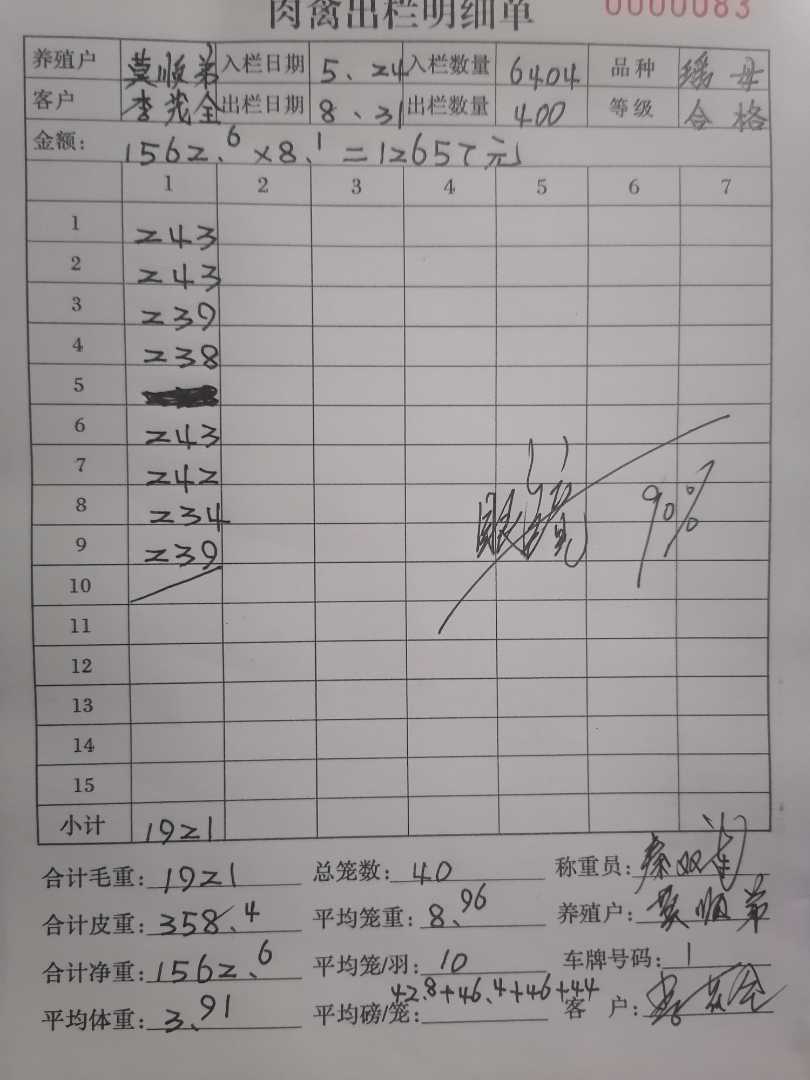 肉禽出栏明细单 0000083
养殖户 莫顺弟 入栏日期 5、24 入栏数量 6404 品种 瑶母
客户 李茂全 出栏日期 8、31 出栏数量 400 等级 合格
金额: 1562.6×8.1=12657元
1 2 3 4 5 6 7
1 243
2 243
3 239
4 238
5
6 243
7 242
8 234
9 239 90%
10
11
12
13
14
15
小计 1921
合计毛重: 1921 总笼数: 40 称重员:
合计皮重: 358.4 平均笼重: 8.96 养殖户: 莫顺弟
合计净重: 1562.6 平均笼/羽: 10 车牌号码: 1
平均体重: 3.91 平均磅/笼: 42.8+46.4+46+44 客 户: